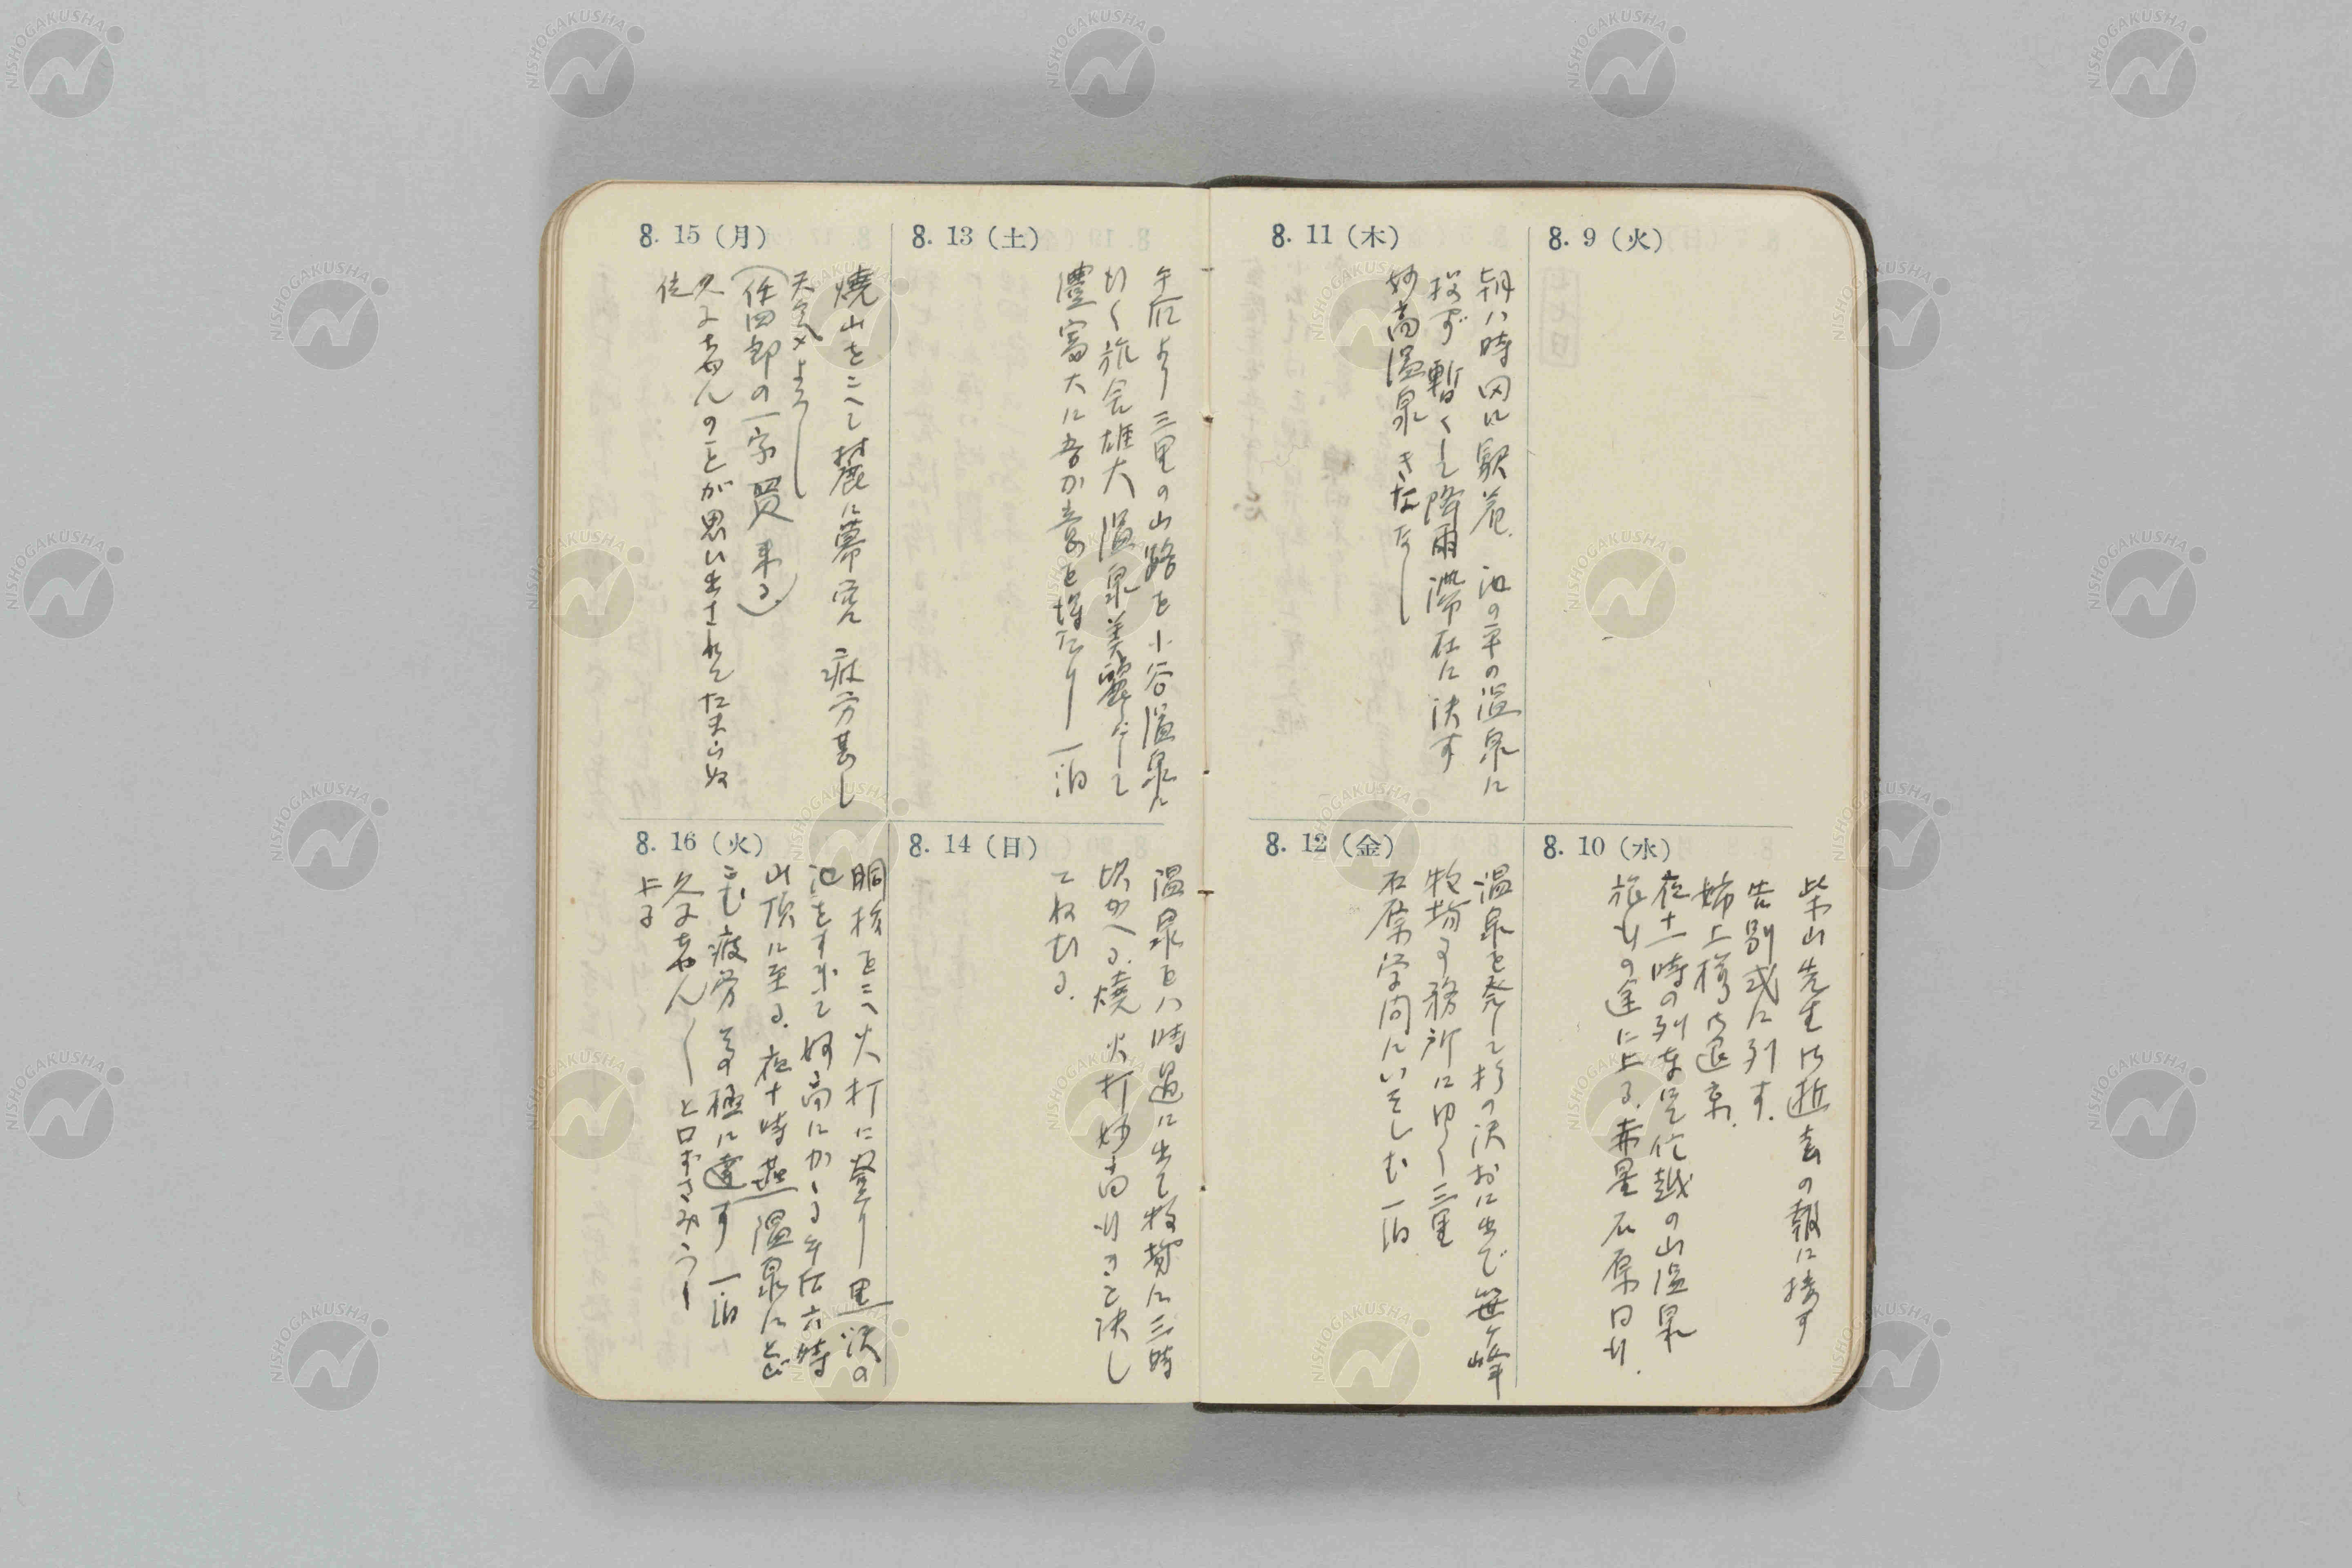 8. 9 (火)
8. 10 (水)
柴山先生御逝去の報に接す
告別式に列す.
姉上様御退京.
夜十一時の列車にて信越の山温泉
旅行の途に上る. 赤星石原同行.
8. 11 (木)
朝八時田口駅着. 池の平の温泉に
投ず 暫くして降雨 滞在に決す
妙高温泉 きたなし
8. 12 (金)
温泉を発して杉の沢村に出で 笹ヶ峰
牧場事務所にゆく 三里
石原学問にいそしむ 一泊
8. 13 (土)
午后より三里の山路を小谷温泉に
行く 旅舎雄大 温泉美麗にして
豊富大に吾が意を得たり 一泊
8. 14 (日)
温泉を八時過に出て牧場に三時
頃かへる. 焼 火打 妙高行きを決し
てねむる.
8. 15 (月)
焼山をこへて麓に幕営 疲労甚し
天気よろし
(任四郎の一字買来る.)
久子ちゃんのことが思い出されてたまらぬ
8. 16 (火)
胴抜をこへ火打に登り 黒沢の
池をすぎて妙高にかゝる 午后六時
山頂に至る. 夜十時燕温泉にとび
こむ 疲労その極に達す 一泊
久子ちゃん〱と口ずさみつゝ
上る